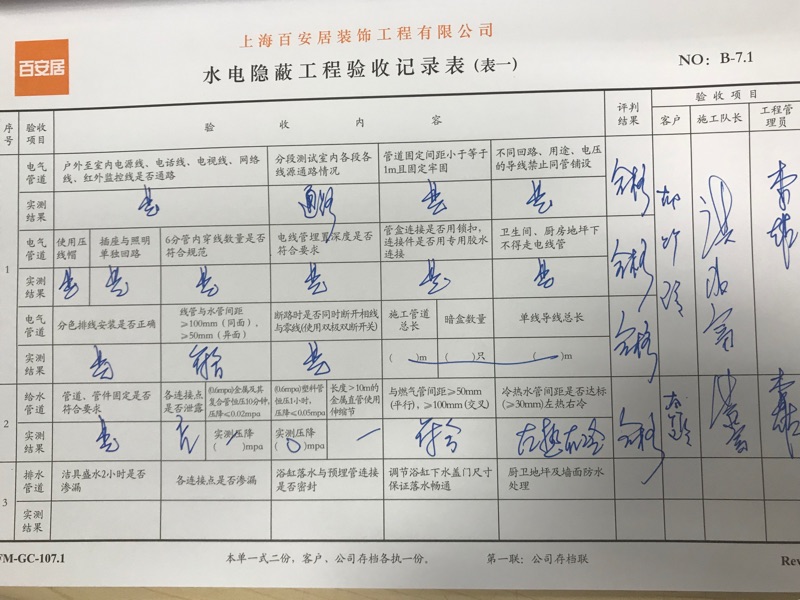 百安居
上海百安居装饰工程有限公司
水电隐蔽工程验收记录表(表一)
NO: B-7.1
序号
验收项目
验 收 内 容
评判结果
验收项目
客户
施工队长
工程管理员
1
电气管道
户外至室内电源线、电话线、电视线、网络
线、红外监控线是否通路
分段测试室内各段各
线源通路情况
管道固定间距小于等于
1m且固定牢固
不同回路、用途、电压
的导线禁止同管铺设
合格
实测结果
是
通路
是
是
电气管道
使用压
线帽
插座与照明
单独回路
6分管内穿线数量是否
符合规范
电线管埋置深度是否
符合要求
管盒连接是否用锁扣,
连接件是否用专用胶水
连接
卫生间、厨房地坪下
不得走电线管
合格
实测结果
是
是
是
是
是
是
电气管道
分色排线安装是否正确
线管与水管间距
≥100mm(同面)、
≥50mm(异面)
断路时是否同时断开相线
与零线(使用双极双断开关)
施工管道
总长
暗盒数量
单线导线总长
合格
实测结果
是
符合
是
( )m
( )只
( )m
2
给水管道
管道、管件固定是否
符合要求
各连接点
是否泄露
(0.6mpa)金属及其
复合管恒压10分钟,
压降≤0.02mpa
(0.6mpa)塑料管
恒压1小时,
压降≤0.05mpa
长度>10m的
金属直管使用
伸缩节
与燃气管间距≥50mm
(平行),≥100mm(交叉)
冷热水管间距是否达标
(≥30mm)左热右冷
合格
实测结果
是
无
实测压降
( )mpa
实测压降
( 0 )mpa
一
符合
左热右冷
3
排水管道
洁具盛水2小时是否
渗漏
各连接点是否渗漏
浴缸落水与预埋管连接
是否密封
调节浴缸下水盖门尺寸
保证落水畅通
厨卫地坪及墙面防水
处理
实测结果
FM-GC-107.1
本单一式二份,客户、公司存档各执一份。
第一联:公司存档联
Rev